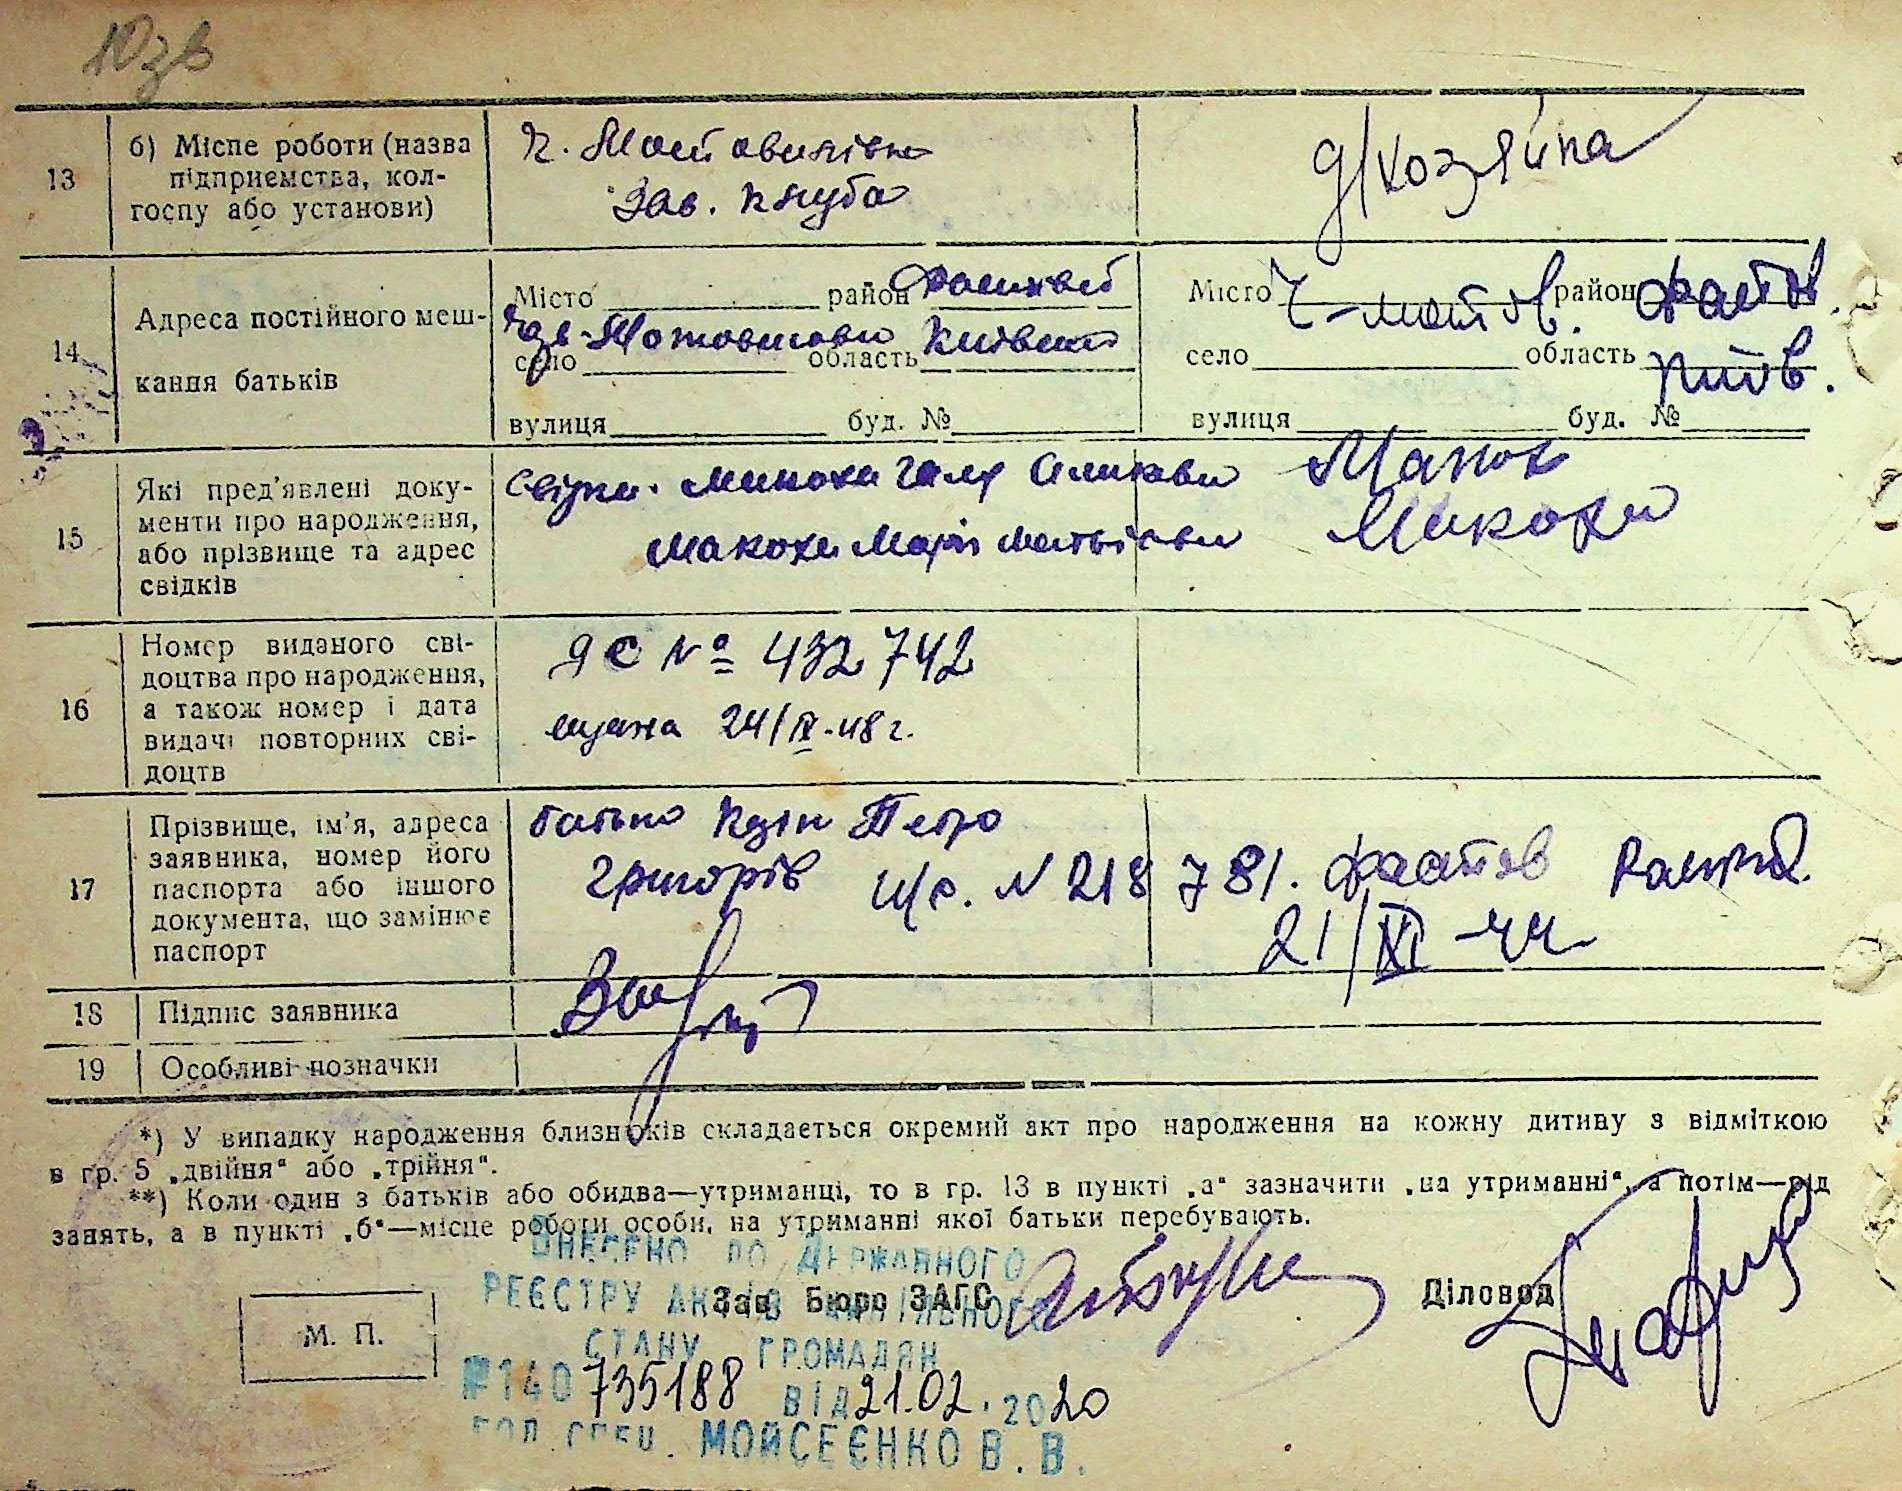 10зв
13
б) Місце роботи (назва
підприємства, кол-
госпу або установи)
Зав. Клуба
д/хозяйка
14
Адреса постійного меш-
кання батьків
Місто район
село область Київська
вулиця буд. №
Місто район Фастів.
село область Київ.
вулиця буд. №
15
Які пред'явлені доку-
менти про народження,
або прізвище та адрес
свідків
Макохи Марії Матвієвни Макохи
16
Номер виданого сві-
доцтва про народження,
а також номер і дата
видачі повторних сві-
доцтв
ЯС № 432742
24/IX-48 г.
17
Прізвище, ім'я, адреса
заявника, номер його
паспорта або іншого
документа, що замінює
паспорт
батько Петро
Григорів N 218781. Фастов
21/XI-44
18
Підпис заявника
19
Особливі позначки
*) У випадку народження близнюків складається окремий акт про народження на кожну дитину з відміткою
в гр. 5 „двійня“ або „трійня“.
**) Коли один з батьків або обидва—утриманці, то в гр. 13 в пункті „а“ зазначити „на утриманні“, а потім—рід
занять, а в пункті „б“—місце роботи особи, на утриманні якої батьки перебувають.
ВНЕСЕНО ДО ДЕРЖАВНОГО
РЕЄСТРУ АКТІВ ЦИВІЛЬНОГО
Зав. Бюро ЗАГС
Діловод
СТАНУ ГРОМАДЯН
М. П.
№140735188 ВІД 21.02.2020
ГОЛ. СПЕЦ. МОЙСЕЄНКО В. В.